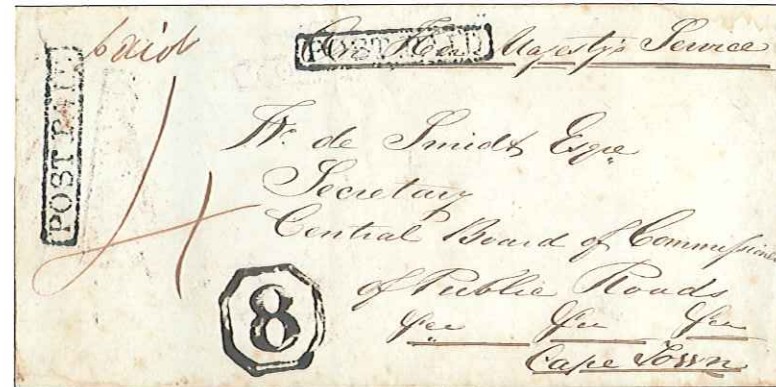 Paid
On Her Majesty's Service
POST PAID
POST PAID
4
W. de Smidt Esqre
Secretary
Central Board of Commissioners
of Public Roads
Cape Town
8